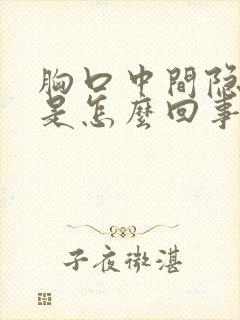 胸口中間隐
是怎麼回事
子夜微湛